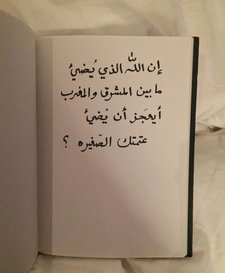 إن اللّٰه الذي يُضيئ
ما بين المشرق والمغرب
أيعجز أن يُضيئ
عتمتك الصّغيره ؟